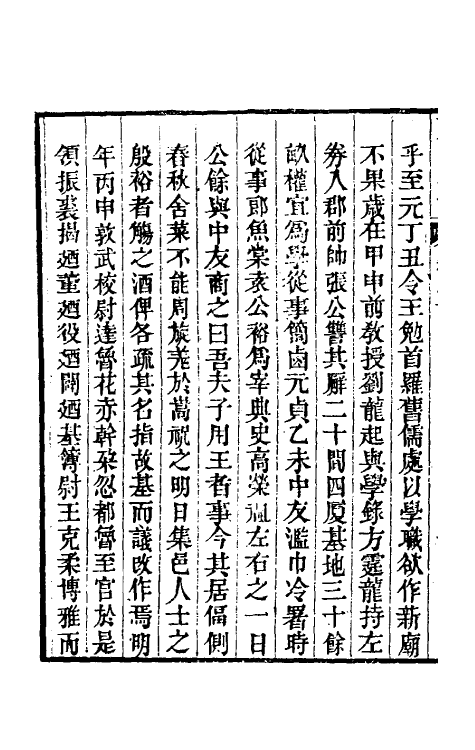 乎至元丁丑令王勉首羅舊儒處以學職欲作新廟
不果歲在甲申前敎授劉龍起與學錄方霆龍持左
券入郡前帥張公讐其廨二十間四廈基地三十餘
畝權宜爲學從事簡鹵元貞乙未中友濫巾冷署時
從事郎魚棠袁公裕爲宰與史高榮温左右之一日
公餘與中友商之曰吾夫子用王者事今其居偪側
春秋舍菜不能周旋羌於嵩祝之明日集邑人士之
殷裕者觴之酒俾各疏其名指故基而議改作焉明
年丙申敦武校尉達魯花赤幹朶忽都魯至官於是
領振裘揭廼董廼役廼闢廼基簿尉王克柔博雅而